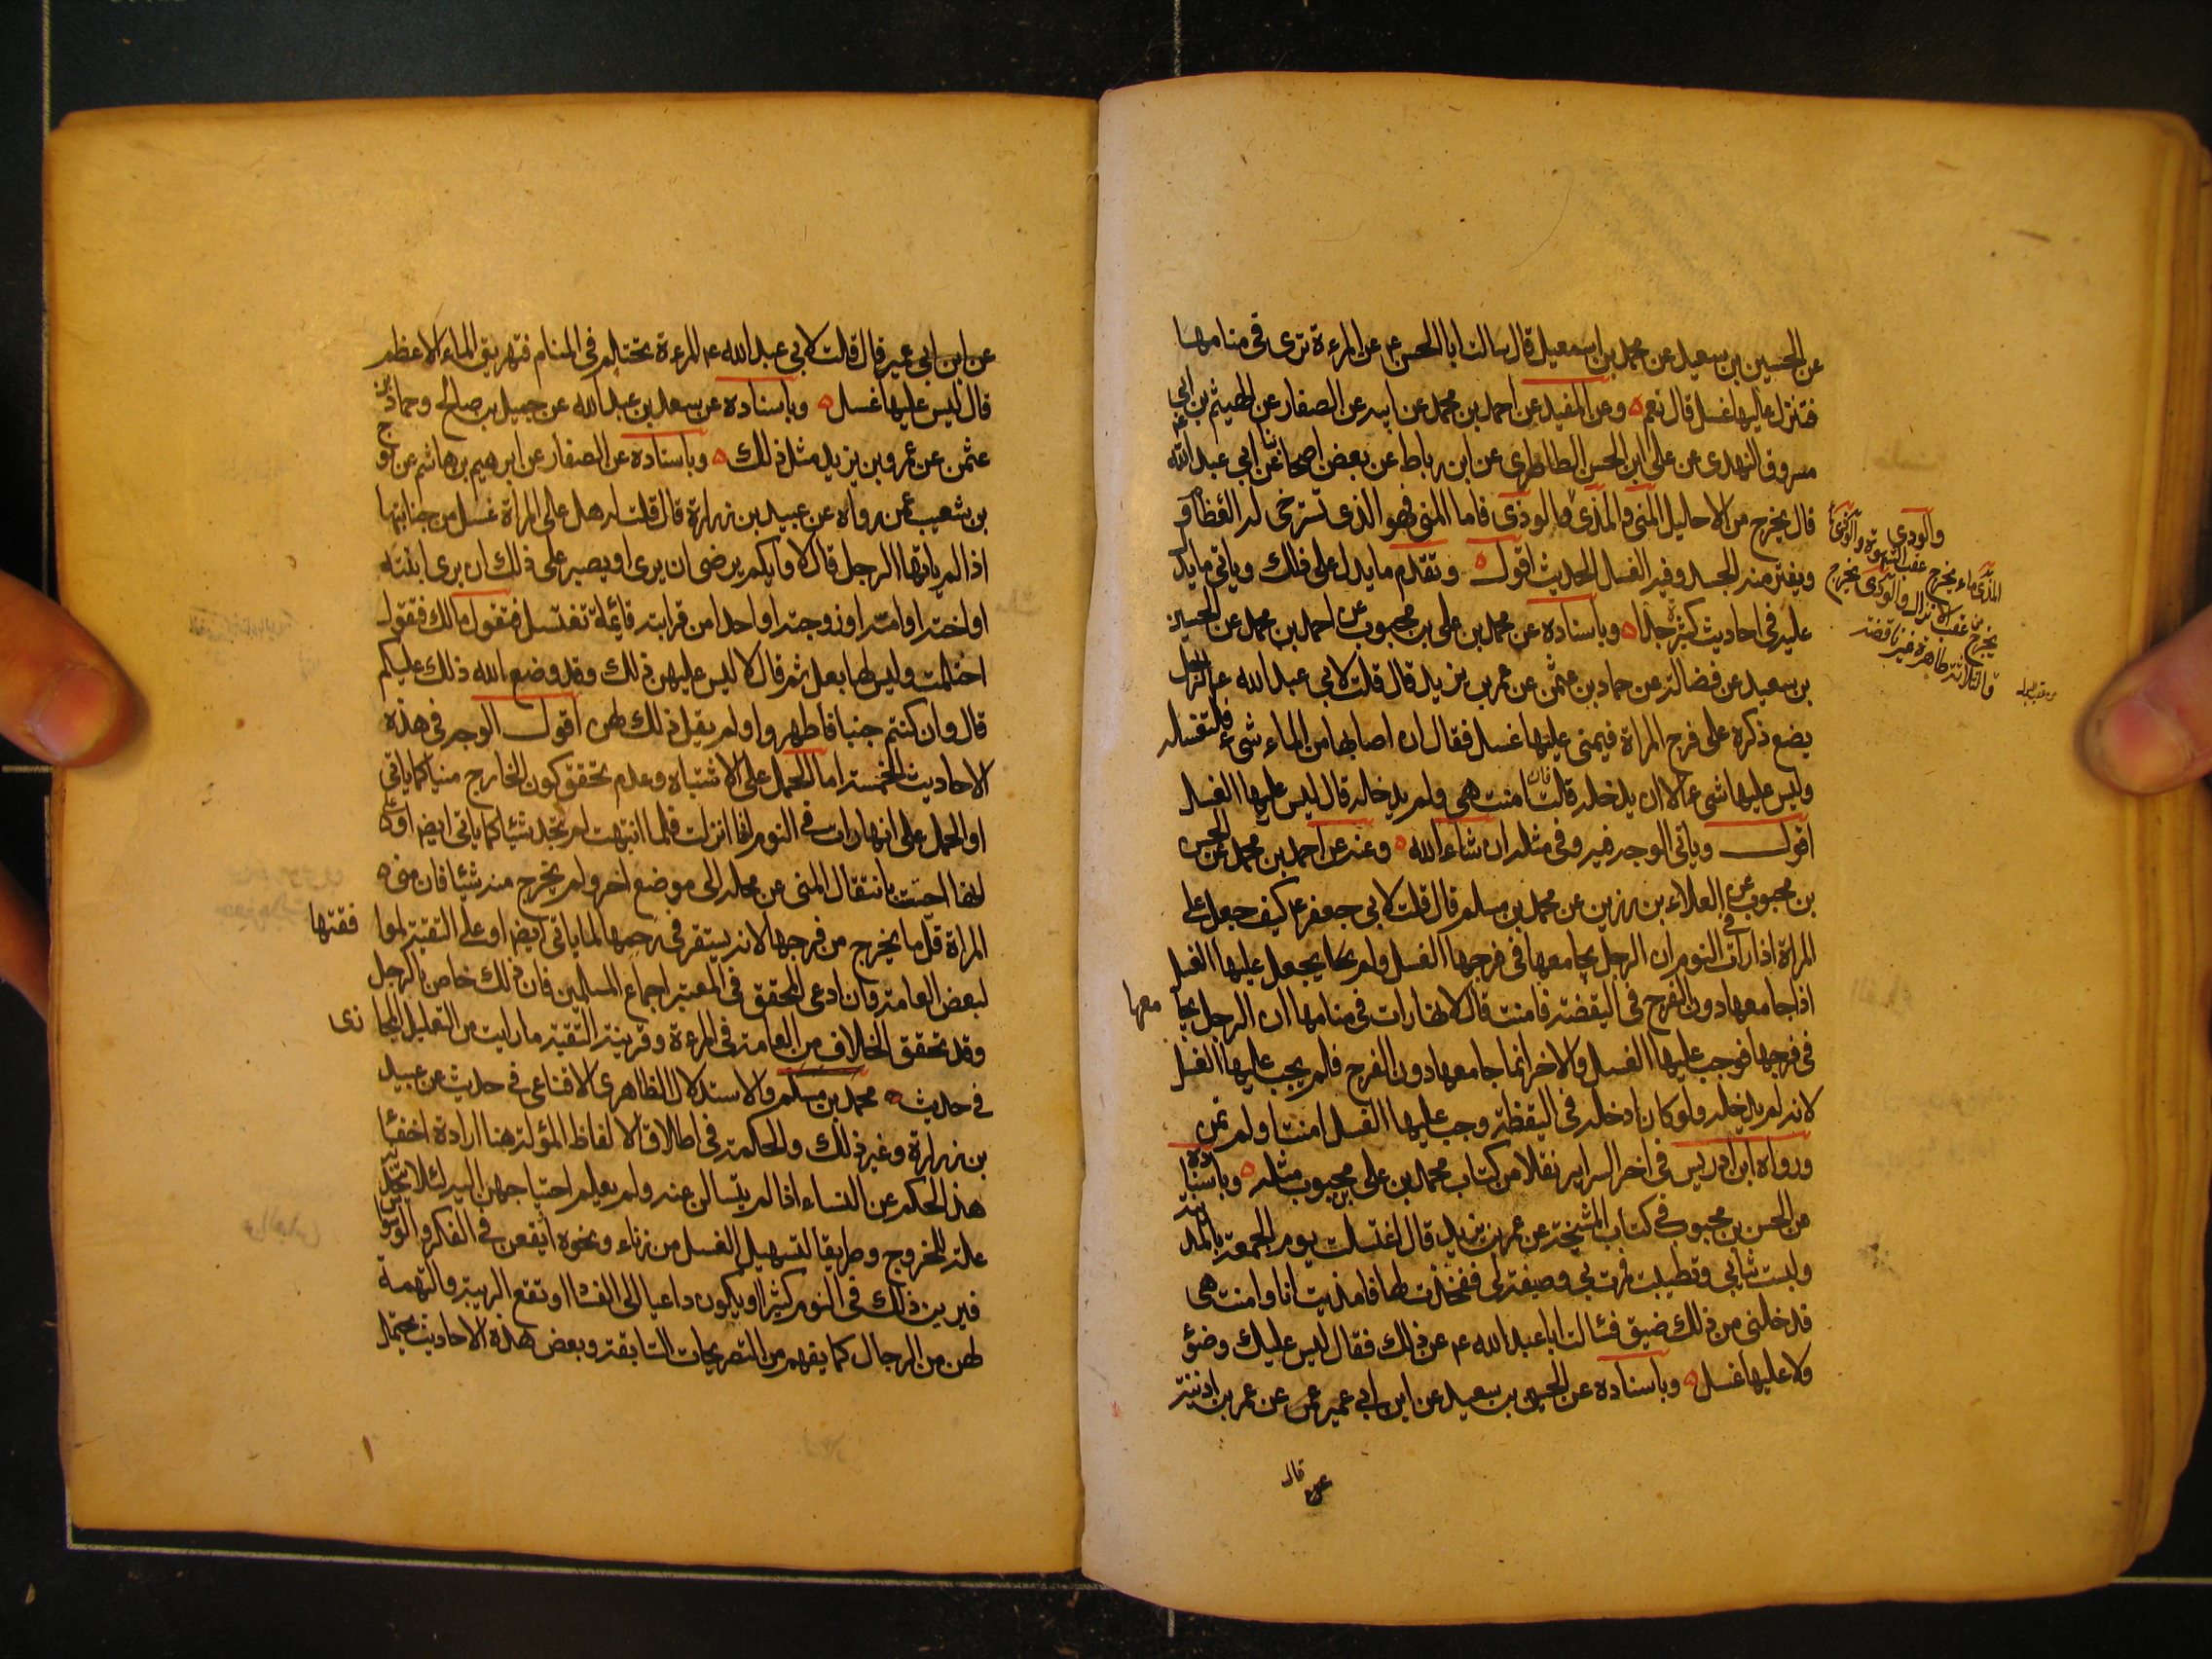 عن الحسين بن سعيد عن محمد بن اسمعيل قال سالت ابا الحسن ع عن المرءة ترى في منامها
فتنزل عليها غسل قال نعم ه وعن المفيد عن احمد بن محمد عن ابيه عن الصفار عن الهيثم بن ابي
مسروق النهدي عن علي ابن الحسن الطاطري عن ابن رباط عن بعض اصحابنا عن ابي عبد الله
قال يخرج من الاحليل المني والمذي والوذي فاما المني فهو الذي تسترخي له العظام
ويفتر منه الجسد وفيه الغسل الحديث اقول ه وتقدم ما يدل على ذلك وياتي ما يدل
عليه في احاديث كثيرة جدا ه وباسناده عن محمد بن علي بن محبوب عن احمد بن محمد عن الحسين
بن سعيد عن فضالة عن حماد بن عثمن عن عمر بن يزيد قال قلت لابي عبد الله ع الرجل
يضع ذكره على فرج المراة فيمني عليها غسل فقال ان اصابها من الماء شيء فلتغسله
وليس عليها شيء الا ان يدخله قلت فان امنت هي ولم يدخله قال ليس عليها الغسل
اقول وياتي الوجه فيه وفي مثله ان شاء الله ه وعنه عن احمد بن محمد عن الحسن
بن محبوب عن العلاء بن رزين عن محمد بن مسلم قال قلت لابي جعفر ع كيف جعل على
المراة اذا رات في النوم ان الرجل يجامعها في فرجها الغسل ولم يجعل عليها الغسل
اذا جامعها دون الفرج في اليقضة فامنت قال لانها رات في منامها ان الرجل يجا معها
في فرجها فوجب عليها الغسل والاخر انما جامعها دون الفرج فلم يجب عليها الغسل
لانه لم يدخله ولو كان ادخله في اليقظة وجب عليها الغسل امنت او لم تمن
ورواه ابن ادريس في اخر السراير نقلا من كتاب محمد بن علي بن محبوب مثله ه وباسناده
عن الحسن بن محبوب في كتاب المشيخة عن عمر بن يزيد قال اغتسلت يوم الجمعة بالمدينة
ولبست ثيابي وتطيبت فمرت بي وصيفة لي ففخذت لها فامذيت انا وامنت هي
فدخلني من ذلك ضيق فسالت ابا عبد الله ع عن ذلك فقال ليس عليك وضوء
ولا عليها غسل ه وباسناده عن الحسين بن سعيد عن ابن ابي عمير عن عمر بن اذينة
قال
والودي
المذي ماء يخرج عقب الشهوة
يخرج عقب الانزال والودي يخرج
والثلاثة طاهرة غير ناقضة
عن ابن ابي عمير قال قلت لابي عبد الله ع المرءة تحتلم في المنام فتهريق الماء الاعظم
قال ليس عليها غسل ه وباسناده عن سعد بن عبد الله عن جميل بن صالح وحماد بن
عثمن عن عمرو بن يزيد مثل ذلك ه وباسناده عن الصفار عن ابرهيم بن هاشم عن نوح
بن شعيب عمن رواه عن عبيد بن زرارة قال قلت له هل على المراة غسل من جنابتها
اذا لم ياتها الرجل قال لا وايكم يرضى ان يرى او يصبر على ذلك ان يرى ابنته
او اخته او امته او زوجته او احدا من قرابته قائمة تغتسل فيقول مالك فتقول
احتلمت وليس لها بعل ثم قال لا ليس عليهن ذلك وقد وضع الله ذلك عليكم
قال وان كنتم جنبا فاطهروا ولم يقل ذلك لهن اقول الوجه في هذه
الاحاديث الخمسة اما الحمل على الاشتباه وعدم تحقق كون الخارج منيا كما ياتي
او الحمل على انها رات في النوم انها انزلت فلما انتبهت لم تجد شيئا كما ياتي ايضا او على
انها احست بانتقال المني عن محله الى موضع اخر ولم يخرج منه شيئا فان مني
المراة قل ما يخرج من فرجها لانه يستقر في رحمها لما ياتي ايضا او على التقية لموا فقتها
لبعض العامة وان ادعى المحقق في المعتبر اجماع المسلمين فان ذلك خاص بالرجل
وقد تحقق الخلاف من العامة في المرءة وقرينة التقية ما رايت من التعليل المجا زي
في حديث محمد بن مسلم والاستدلال الظاهري الاقناعي في حديث عن عبيد
بن زرارة وغير ذلك والحكمة في اطلاق الالفاظ المؤلة هنا ارادة اخفاء
هذا الحكم عن النساء اذا لم يتسالن عنه ولم يعلم احتياجهن اليه لئلا يتخذنه
علة للخروج وطريقا لتسهيل الغسل من زناء ونحوه او يقعن في الفكر والوسواس
فيرين ذلك في النوم كثيرا ويكون داعيا الى الفساد او تقع الريبة والتهمة
لهن من الرجال كما يفهم من التصريحات السابقة وبعض هذه الاحاديث يحتمل